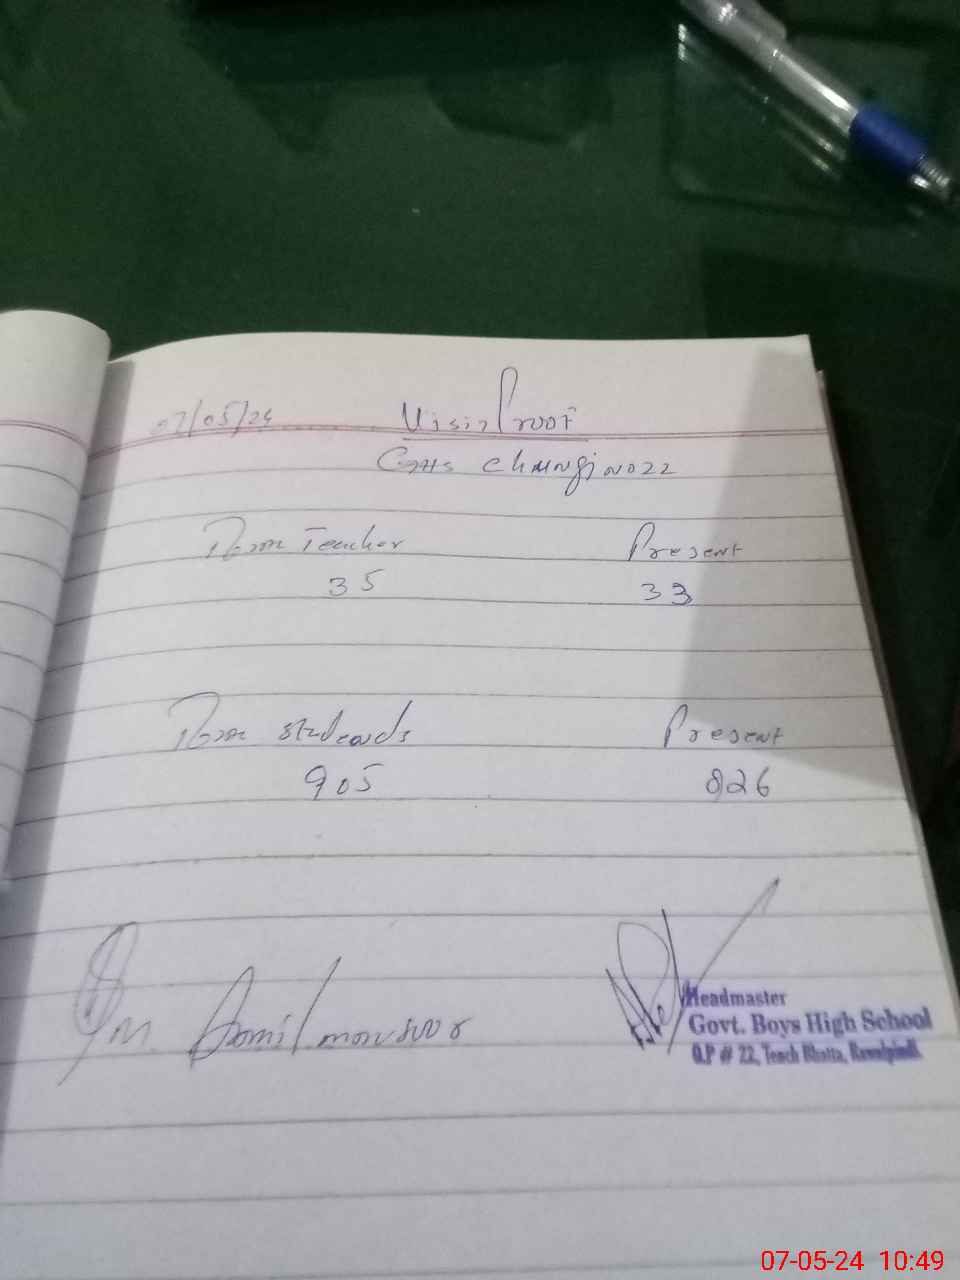 07/05/24 Visit Proof
GHS Chungi no 22
Teacher Present
35 33
Students Present
905 826
M. Jamil mansoor
Headmaster
Govt. Boys High School
Q.P # 22, Tench Bhatta, Rawalpindi.
07-05-24 10:49